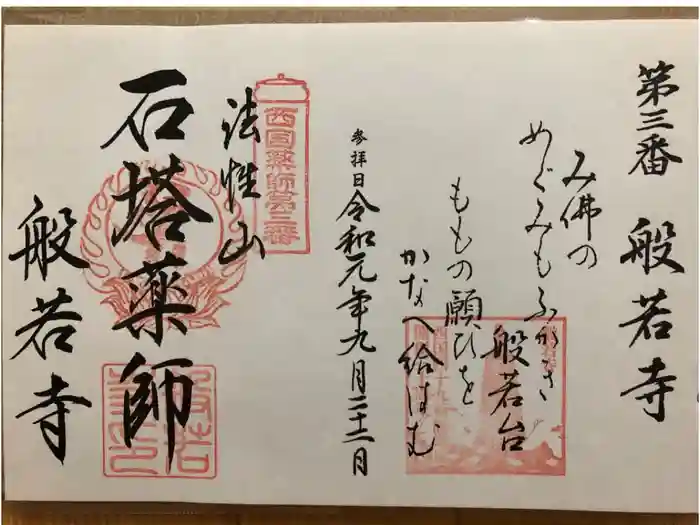 第三番 般若寺
み佛の
めぐみもふかき
般若台
ももの願ひを
かなへ給はむ
参拝日令和元年九月二十二日
西国薬師第三番
法性山
石塔薬師
般若寺